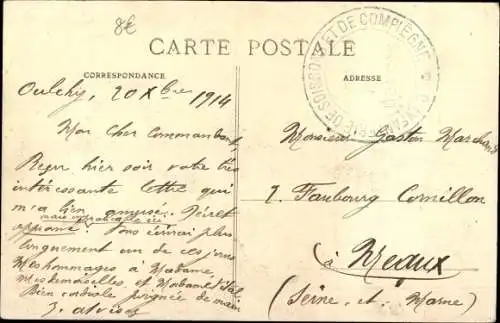 8€
CARTE POSTALE
CORRESPONDANCE
ADRESSE
SOISSONS ET DE COMPIÈGNE
Oulchy, 20 Xbre 1914
Mon Cher Commandant,
Reçu hier soir votre très
intéressante lettre qui
m'a bien amusé.
mais
Vous écrirai plus
longuement un de ces jours
Mes hommages à Madame,
Mesdemoiselles, et
Bien cordiale poignée de main
Monsieur Gaston Marchand
7. Faubourg Cornillon
à Meaux
(Seine-et-Marne)